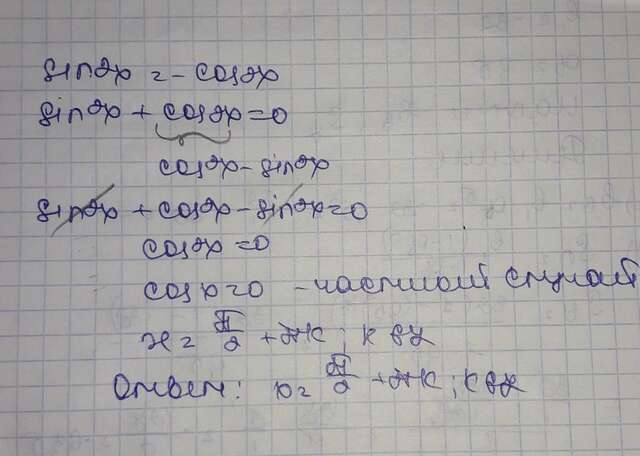 sin2x = - cos2x
sin2x + cos2x = 0
cos2x - sin2x
sin2x + cos2x - sin2x = 0
cos2x = 0
cosx = 0 - частный случай
x = π/2 + πk; k ∈ Z
Ответ: x = π/2 + πk; k ∈ Z